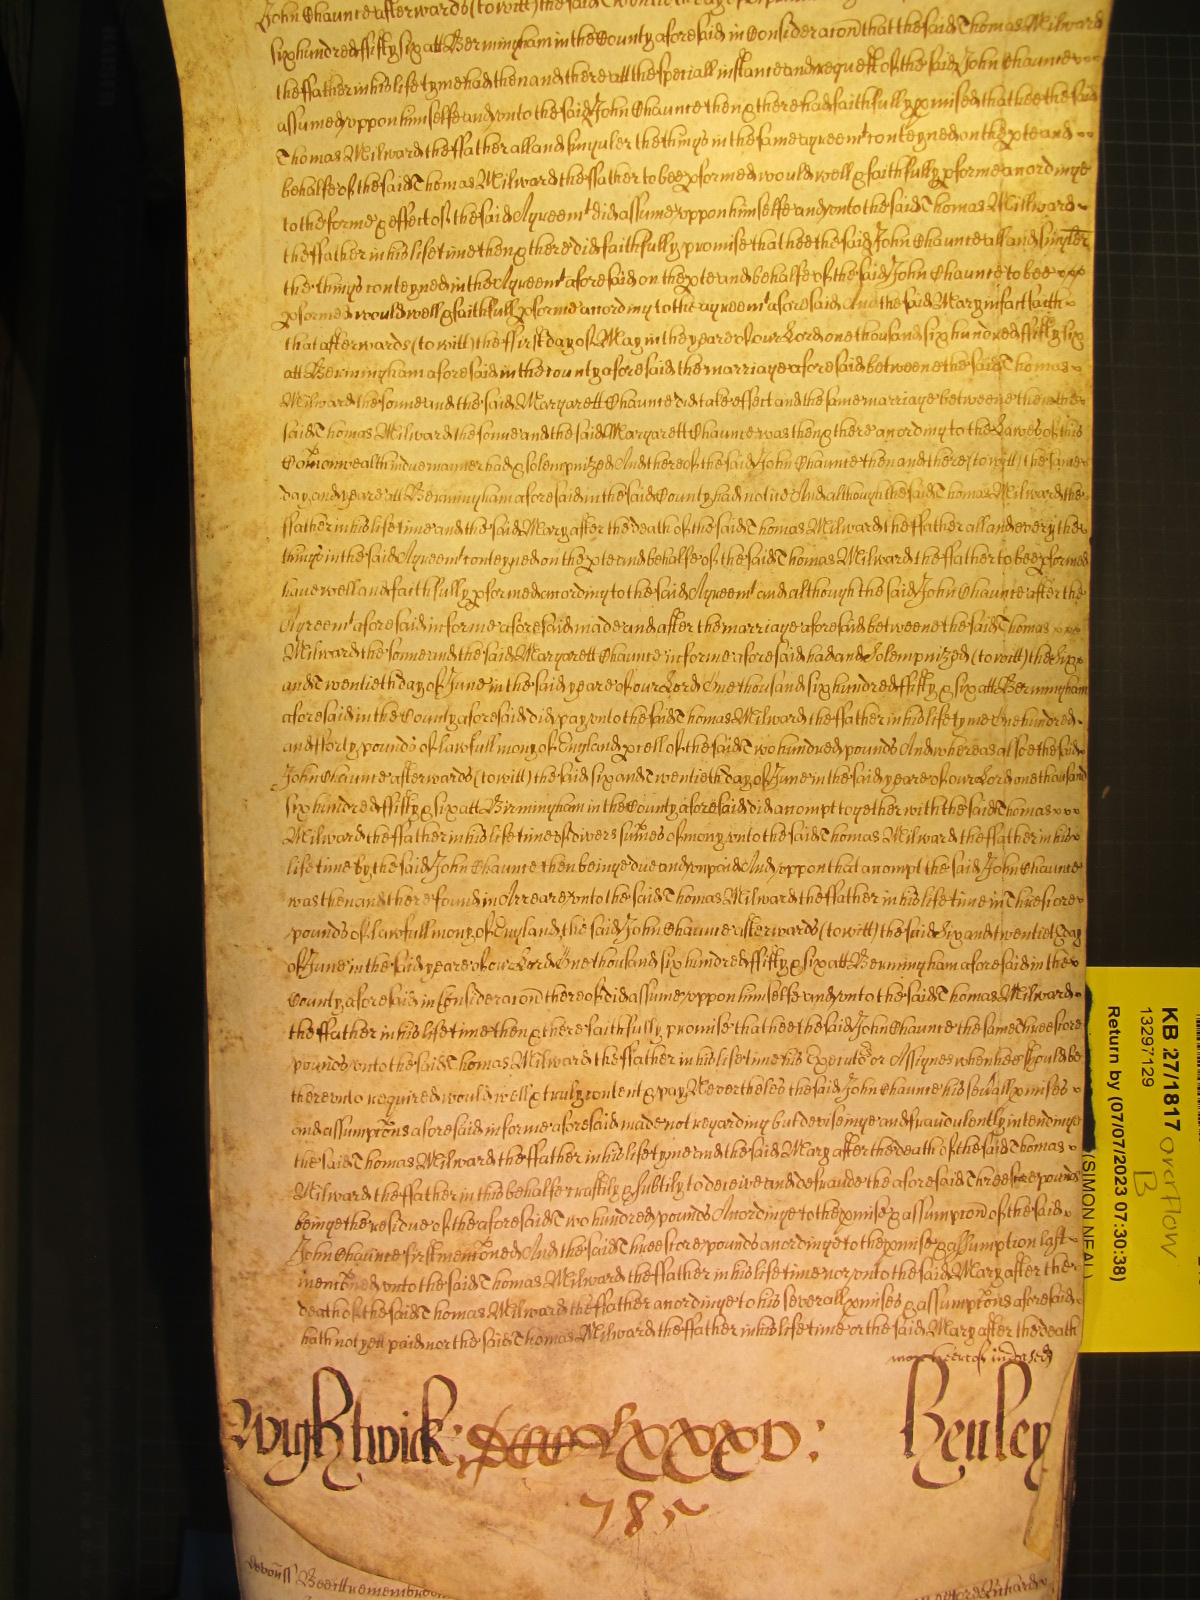 John Chaunce afterwards (to witt) the said
six hundred fifty six att Bermingham in the County aforesaid in Consideracōn that the said Thomas Milward
the ffather in his life tyme had then and there att the speciall instance and request of the said John Chaunce
assumed vppon himselfe and vnto the said John Chaunce then & there had faithfully pmised that hee the said
Thomas Milward the ffather all and singuler the things in the same agreemt conteyned on the pte and
behalfe of the said Thomas Milward the ffather to bee pformed would well & faithfully pforme accordinge
to the forme & effect of the said Agreemt did assume vppon himselfe and vnto the said Thomas Millward
the ffather in his life time then & there did faithfully promise that hee the said John Chaunce all and singler
the things conteyned in the Agreemt aforesaid on the pte and behalfe of the said John Chaunce to bee
pformed would well & faithfully pforme accordinge to the agreemt aforesaid And the said Mary in fact saith
that afterwards (to witt) the ffirst day of May in the yeare of our Lord one thousand six hundred fifty six
att Bermingham aforesaid in the county aforesaid the marriage aforesaid betweene the said Thomas
Milward the sonne and the said Margarett Chaunce did take effect and the same marriage betweene them the
said Thomas Milward the sonne and the said Margarett Chaunce was then & there accordinge to the Lawes of this
Cōmonwealth in due manner had & solempnized And thereof the said John Chaunce then and there (to witt) the same
day and yeare att Bermingham aforesaid in the said County had notice And although the said Thomas Milward the
ffather in his life time and the said Mary after the death of the said Thomas Milward the ffather all and every the
things in the said Agreemt conteyned on the pte and behalfe of the said Thomas Milward the ffather to bee pformed
have well and faithfully pformed accordinge to the said Agreemt and although the said John Chaunce after the
Agreemt aforesaid in forme aforesaid made and after the marriage aforesaid betweene the said Thomas
Milward the sonne and the said Margarett Chaunce in forme aforesaid had and Solempnized (to witt) the Six
and Twentieth day of June in the said yeare of our Lord One thousand six hundred ffifty & six att Bermingham
aforesaid in the County aforesaid did pay vnto the said Thomas Milward the ffather in his life tyme One hundred
and fforty pounds of lawfull mony of England pcell of the said Two hundred pounds And whereas alsoe the said
John Chaunce afterwards (to witt) the said six and Twentieth day of June in the said yeare of our Lord one thousand
six hundred ffifty & six att Birmingham in the County aforesaid did accompt together with the said Thomas
Milward the ffather in his life time of divers sūmes of mony vnto the said Thomas Milward the ffather in his
life time by the said John Chaunce then beinge due and vnpaid And vppon that accompt the said John Chaunce
was then and there found in Arreare vnto the said Thomas Milward the ffather in his life time in Threescore
pounds of lawfull mony of England, the said John Chaunce afterwards (to witt) the said Six and twentieth day
of June in the said yeare of our Lord One thousand six hundred ffifty & six att Bermingham aforesaid in the
County aforesaid in Consideracōn thereof did assume vppon himselfe and vnto the said Thomas Milward
the ffather in his life time then & there faithfully promise that hee the said John Chaunce the same Threescore
pounds vnto the said Thomas Milward the ffather in his life time his Executors or Assignes when hee should be
therevnto required would well & truly content & pay Nevertheles the said John Chaunce his sevall pmises
and assumptōns aforesaid in forme aforesaid made not regarding but deviseinge and fraudulently intendinge
the said Thomas Milward the ffather in his life tyme and the said Mary after the death of the said Thomas
Milward the ffather in this behalfe craftily & subtily to deceive and defraude the aforesaid Threescore pounds
beinge the residue of the aforesaid Two hundred pounds Accordinge to the pmise & assumpcōn of the said
John Chaunce first mencōned And the said Threescore pounds accordinge to the pmise & assumption last
mencōned vnto the said Thomas Milward the ffather in his life time nor vnto the said Mary after the
death of the said Thomas Milward the ffather accordinge to his severall pmises & assumptōns aforesaid
hath not yett paid nor the said Thomas Milward the ffather in his life time or the said Mary after the death
more hereof indorsed
Wightwick: DCCLXXXV: Henley
785
Beeitt remembred
KB 27/1817 overflow
B
13297129
Return by (07/07/2023 07:30:38)
(SIMON NEAL)